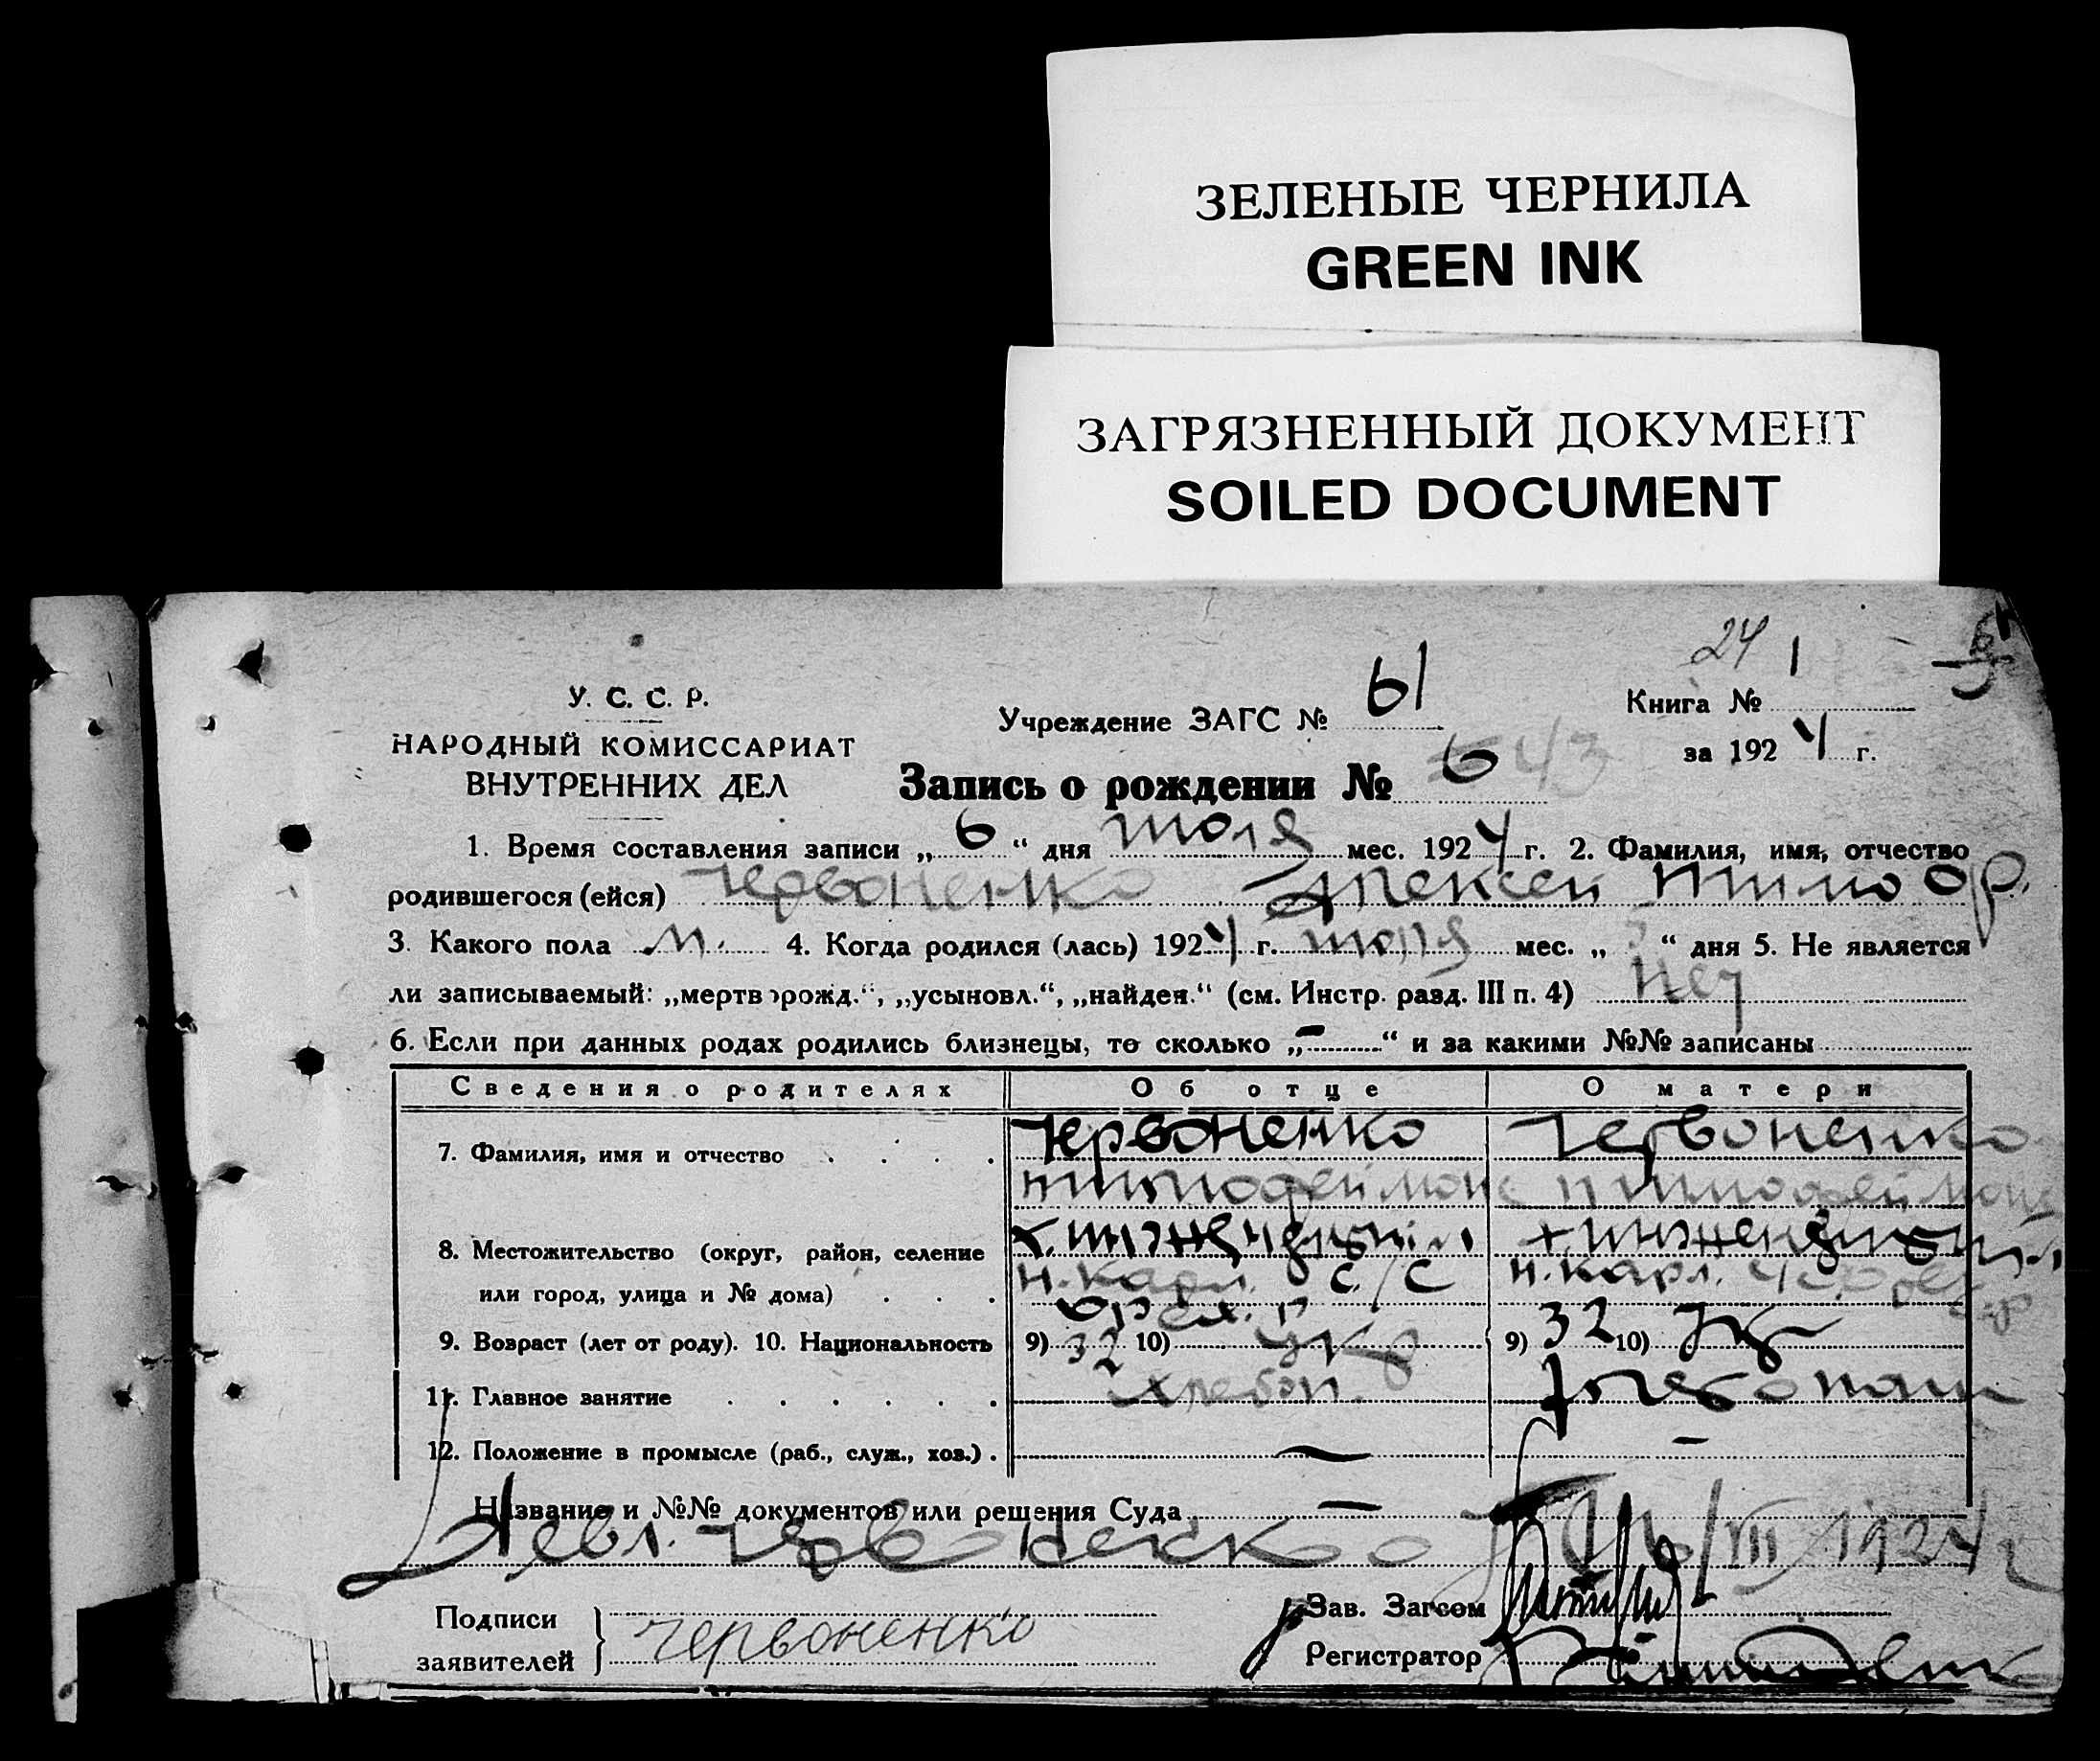 ЗЕЛЕНЫЕ ЧЕРНИЛА
GREEN INK
ЗАГРЯЗНЕННЫЙ ДОКУМЕНТ
SOILED DOCUMENT
24 1
У. С. С. Р.
НАРОДНЫЙ КОМИССАРИАТ
ВНУТРЕННИХ ДЕЛ
Учреждение ЗАГС № 61
Книга №
за 1924 г.
Запись о рождении № 6 43
1. Время составления записи „ 6 “ дня июля мес. 1924 г. 2. Фамилия, имя, отчество
родившегося (ейся) Червоненко Алексей Тимоф.
3. Какого пола м. 4. Когда родился (лась) 1924 г. июля мес. „ 5 “ дня 5. Не является
ли записываемый: „мертворожд.“, „усыновл.“, „найден.“ (см. Инстр. разд. III п. 4) Нет
6. Если при данных родах родились близнецы, то сколько „ - “ и за какими №№ записаны
Сведения о родителях Об отце О матери
7. Фамилия, имя и отчество Червоненко Червоненко
8. Местожительство (округ, район, селение
н. карл. с/с н. карл.
или город, улица и № дома)
9. Возраст (лет от роду). 10. Национальность 9) 32 10) укр 9) 32 10) Ук
11. Главное занятие хлебоп.
12. Положение в промысле (раб., служ., хоз.) — —
Название и №№ документов или решения Суда —
VII 1924
Подписи
заявителей } Червоненко
Зав. Загсом
Регистратор